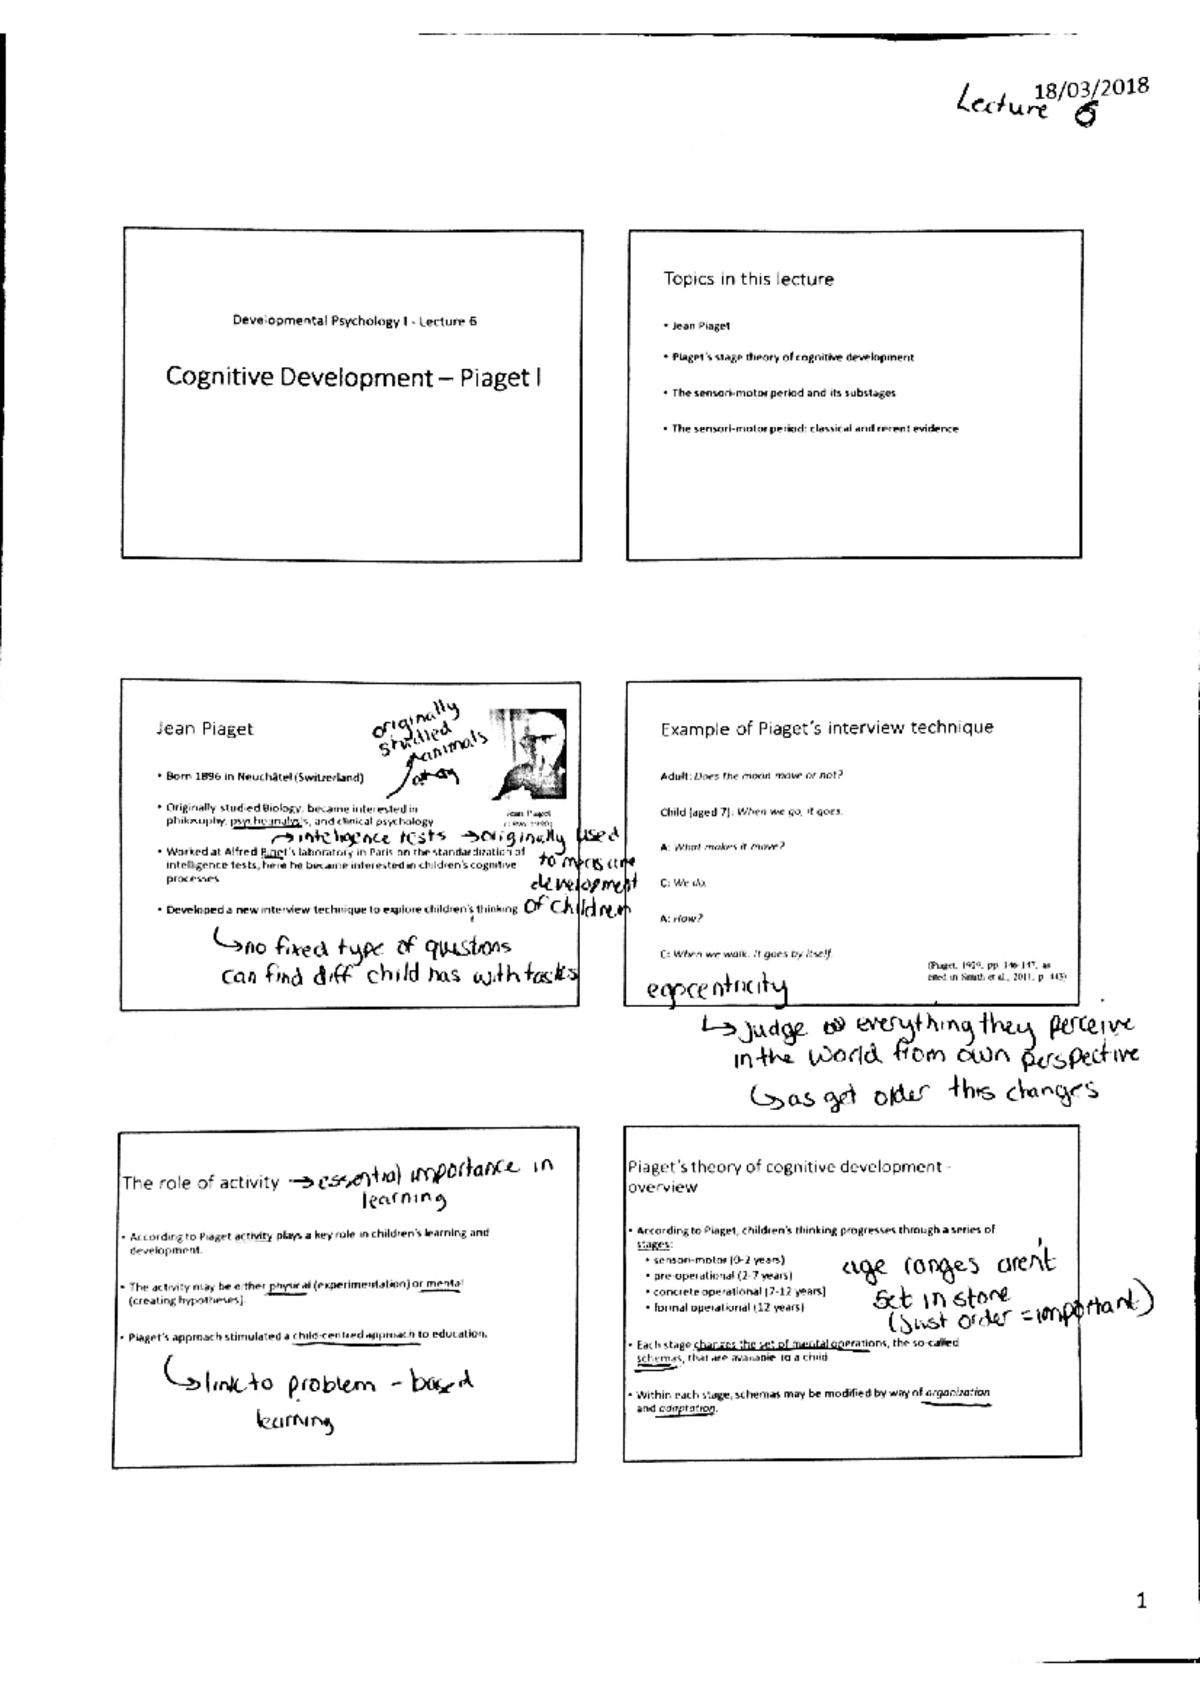 18/03/2018
Lecture 6
Developmental Psychology I - Lecture 6
Cognitive Development – Piaget I
Topics in this lecture
• Jean Piaget
• Piaget's stage theory of cognitive development
• The sensori-motor period and its substages
• The sensori-motor period: classical and recent evidence
Jean Piaget
originally
studied
animals
• Born 1896 in Neuchâtel (Switzerland)
• Originally studied Biology, became interested in
philosophy, psychoanalysis, and clinical psychology
Jean Piaget
→ intelligence tests → originally used
to measure
development
of children
• Worked at Alfred Binet's laboratory in Paris on the standardization of
intelligence tests, here he became interested in children's cognitive
processes
• Developed a new interview technique to explore children's thinking
↳ no fixed type of questions
can find diff child has with tasks
Example of Piaget's interview technique
Adult: Does the moon move or not?
Child [aged 7]: When we go, it goes.
A: What makes it move?
C: We do.
A: How?
C: When we walk. It goes by itself.
(Piaget, 1929, pp. 146-147, as
cited in Smith et al., 2011, p. 443)
egocentricity
↳ judge everything they perceive
in the world from own perspective
↳ as get older this changes
The role of activity → essential importance in
learning
• According to Piaget activity plays a key role in children's learning and
development.
• The activity may be either physical (experimentation) or mental
(creating hypotheses).
• Piaget's approach stimulated a child-centred approach to education.
↳ link to problem - based
learning
Piaget's theory of cognitive development -
overview
• According to Piaget, children's thinking progresses through a series of
stages:
• sensori-motor (0-2 years)
• pre-operational (2-7 years)
• concrete operational (7-12 years)
• formal operational (12 years)
age ranges aren't
set in stone
(just order = important)
• Each stage changes the set of mental operations, the so-called
schemas, that are available to a child
• Within each stage, schemas may be modified by way of organization
and adaptation.
1